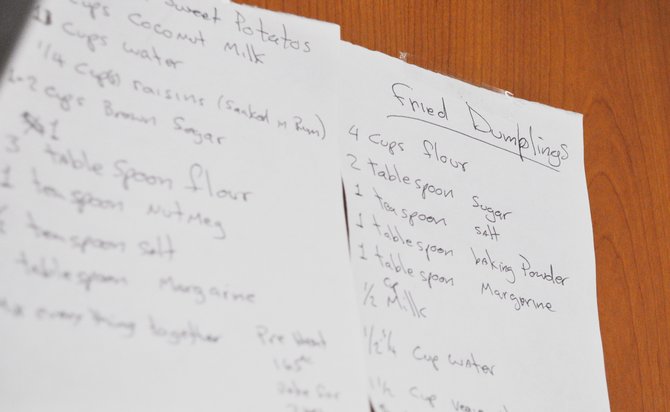 Sweet Potatos
cups Coconut Milk
cups water
1/4 cup(s) raisins (Soaked in Rum)
1-2 cups Brown Sugar
1
3 table spoon flour
1 teaspoon Nutmeg
teaspoon salt
tablespoon Margarine
mix everything together
Pre Heat
165°C
Fried Dumplings
4 cups flour
2 tablespoon Sugar
1 teaspoon salt
1 tablespoon baking Powder
1 tablespoon Margarine
1/2 cp Milk
1/2 1/4 cup water
1 1/2 cup